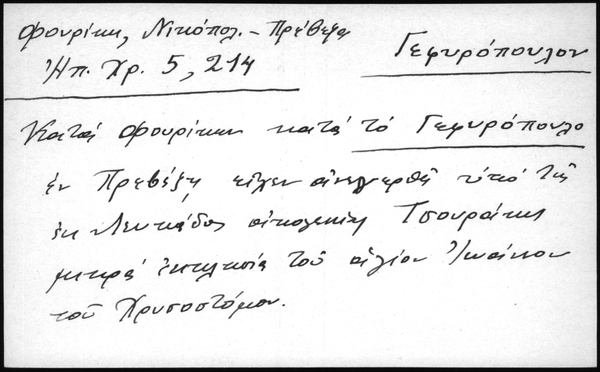 Φουρίκη, Νικόπολ. - Πρέβεζα Γεφυρόπουλον
Ἠπ. Χρ. 5, 214
Κατά Φουρίκην κατά τό Γεφυρόπουλο
ἐν Πρεβέζῃ εἶχεν ἀνεγερθῆ ὑπό τῆς
ἐκ Λευκάδος οἰκογενείας Τσουράκη
μικρά ἐκκλησία τοῦ ἁγίου Ἰωάννου
τοῦ Χρυσοστόμου.